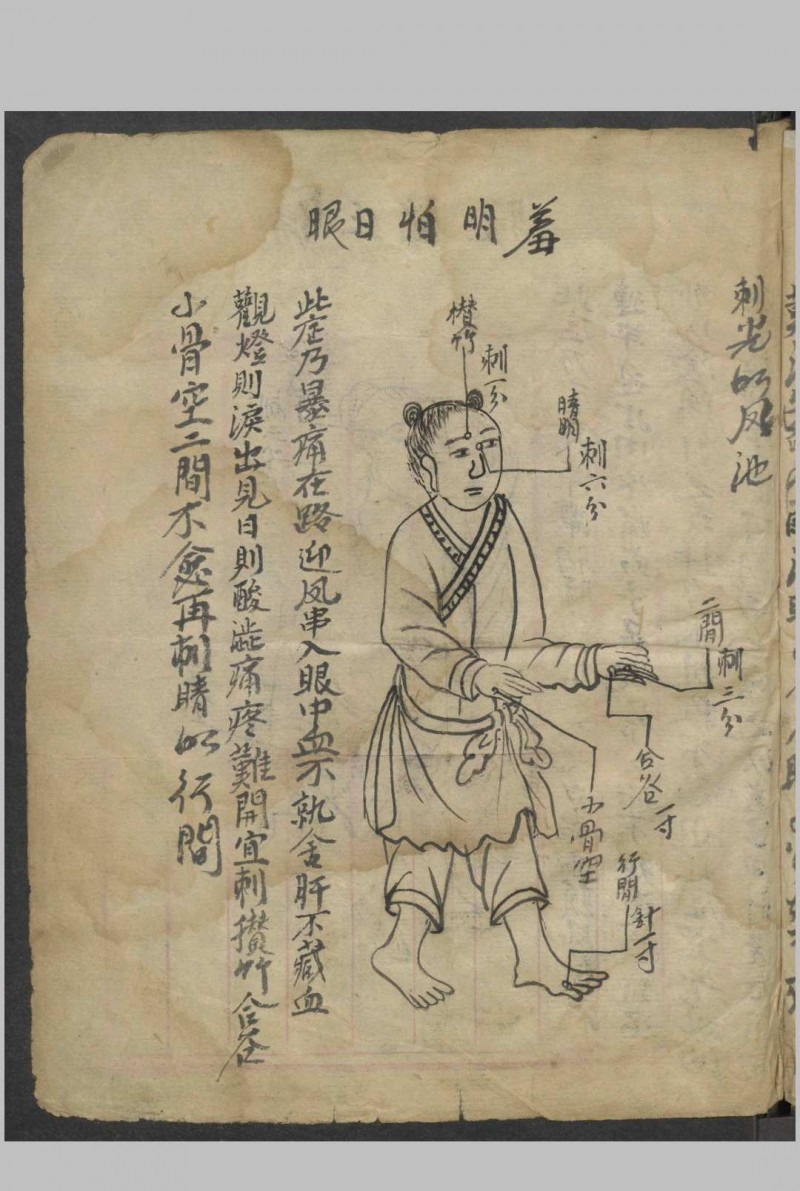 羞明怕日眼
刺光明風池
攢竹
刺一分
睛明
刺六分
二間
刺三分
合谷一寸
小骨空
行間
針一寸
此症乃暴痛在路迎風串入眼中血不就舍肝不藏血
觀燈則淚出見日則酸澁痛疼難開宜刺攢竹合谷
小骨空二間不愈再刺睛明行間